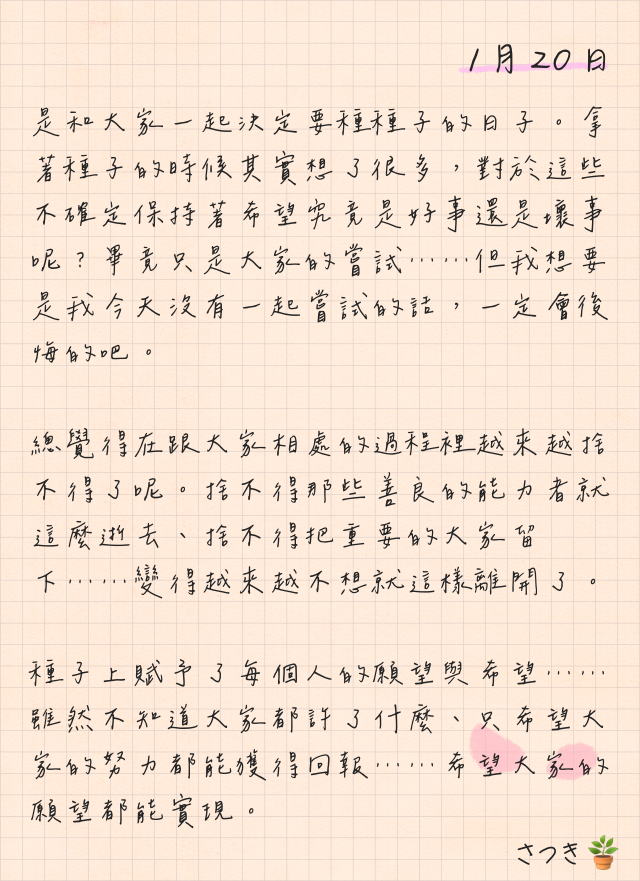 1月20日
是和大家一起決定要種種子的日子。拿
著種子的時候其實想了很多，對於這些
不確定保持著希望究竟是好事還是壞事
呢？畢竟只是大家的嘗試……但我想要
是我今天沒有一起嘗試的話，一定會後
悔的吧。
總覺得在跟大家相處的過程裡越來越捨
不得了呢。捨不得那些善良的能力者就
這麼逝去、捨不得把重要的大家留
下……變得越來越不想就這樣離開了。
種子上賦予了每個人的願望與希望……
雖然不知道大家都許了什麼、只希望大
家的努力都能獲得回報……希望大家的
願望都能實現。
さつき